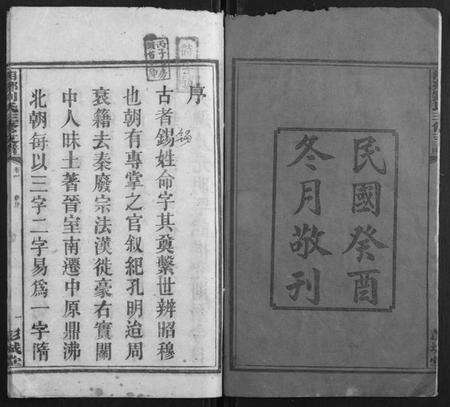 民國癸酉
冬月敬刊
序
古者錫姓命字其奠繫世辨昭穆
也朝有專掌之官叙紀孔明迨周
衰籍去秦廢宗法漢徙豪右實關
中人昧土著晉室南遷中原鼎沸
北朝每以三字二字易爲一字隋